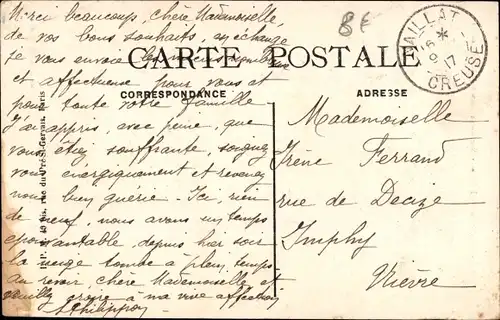 Merci beaucoup, chère Mademoiselle,
de vos bons souhaits, en échange
je vous envoie les miens
8F
AILLAT
16 * 1
9 17
CREUSE
CARTE POSTALE
et affectueux pour vous et
CORRESPONDANCE
ADRESSE
pour toute votre famille
J'ai appris, avec peine, que
vous étiez souffrante, soignez
vous énergiquement et revenez
nous bien guérie - Ici, rien
de neuf, nous avons un temps
épouvantable, depuis hier soir
la neige tombe à plein temps
au revoir, chère Mademoiselle et
veuillez croire à ma vive affection
Philippon
Mademoiselle
Irène Ferrand
rue de Decize
Imphy
Nièvre
40 bis, rue du Pré-St-Gervais, Paris